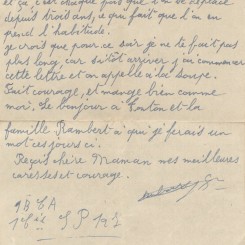 et ça c'est chaque fois que l'on se déplace
depuis trois ans, ce qui fait que l'on en
prend d'habitude.
je crois que pour ce soir je ne te fait pas
plus long, car sitot arriver j'ai commencer
cette lettre et on appelle à la soupe.
Fait courage, et mange bien comme
moi. Le bonjour à Tonton et la
famille Rambert à qui je ferais un
mot ces jours ci.
Reçois chère Maman mes meilleures
caresses et courage.
S P 195